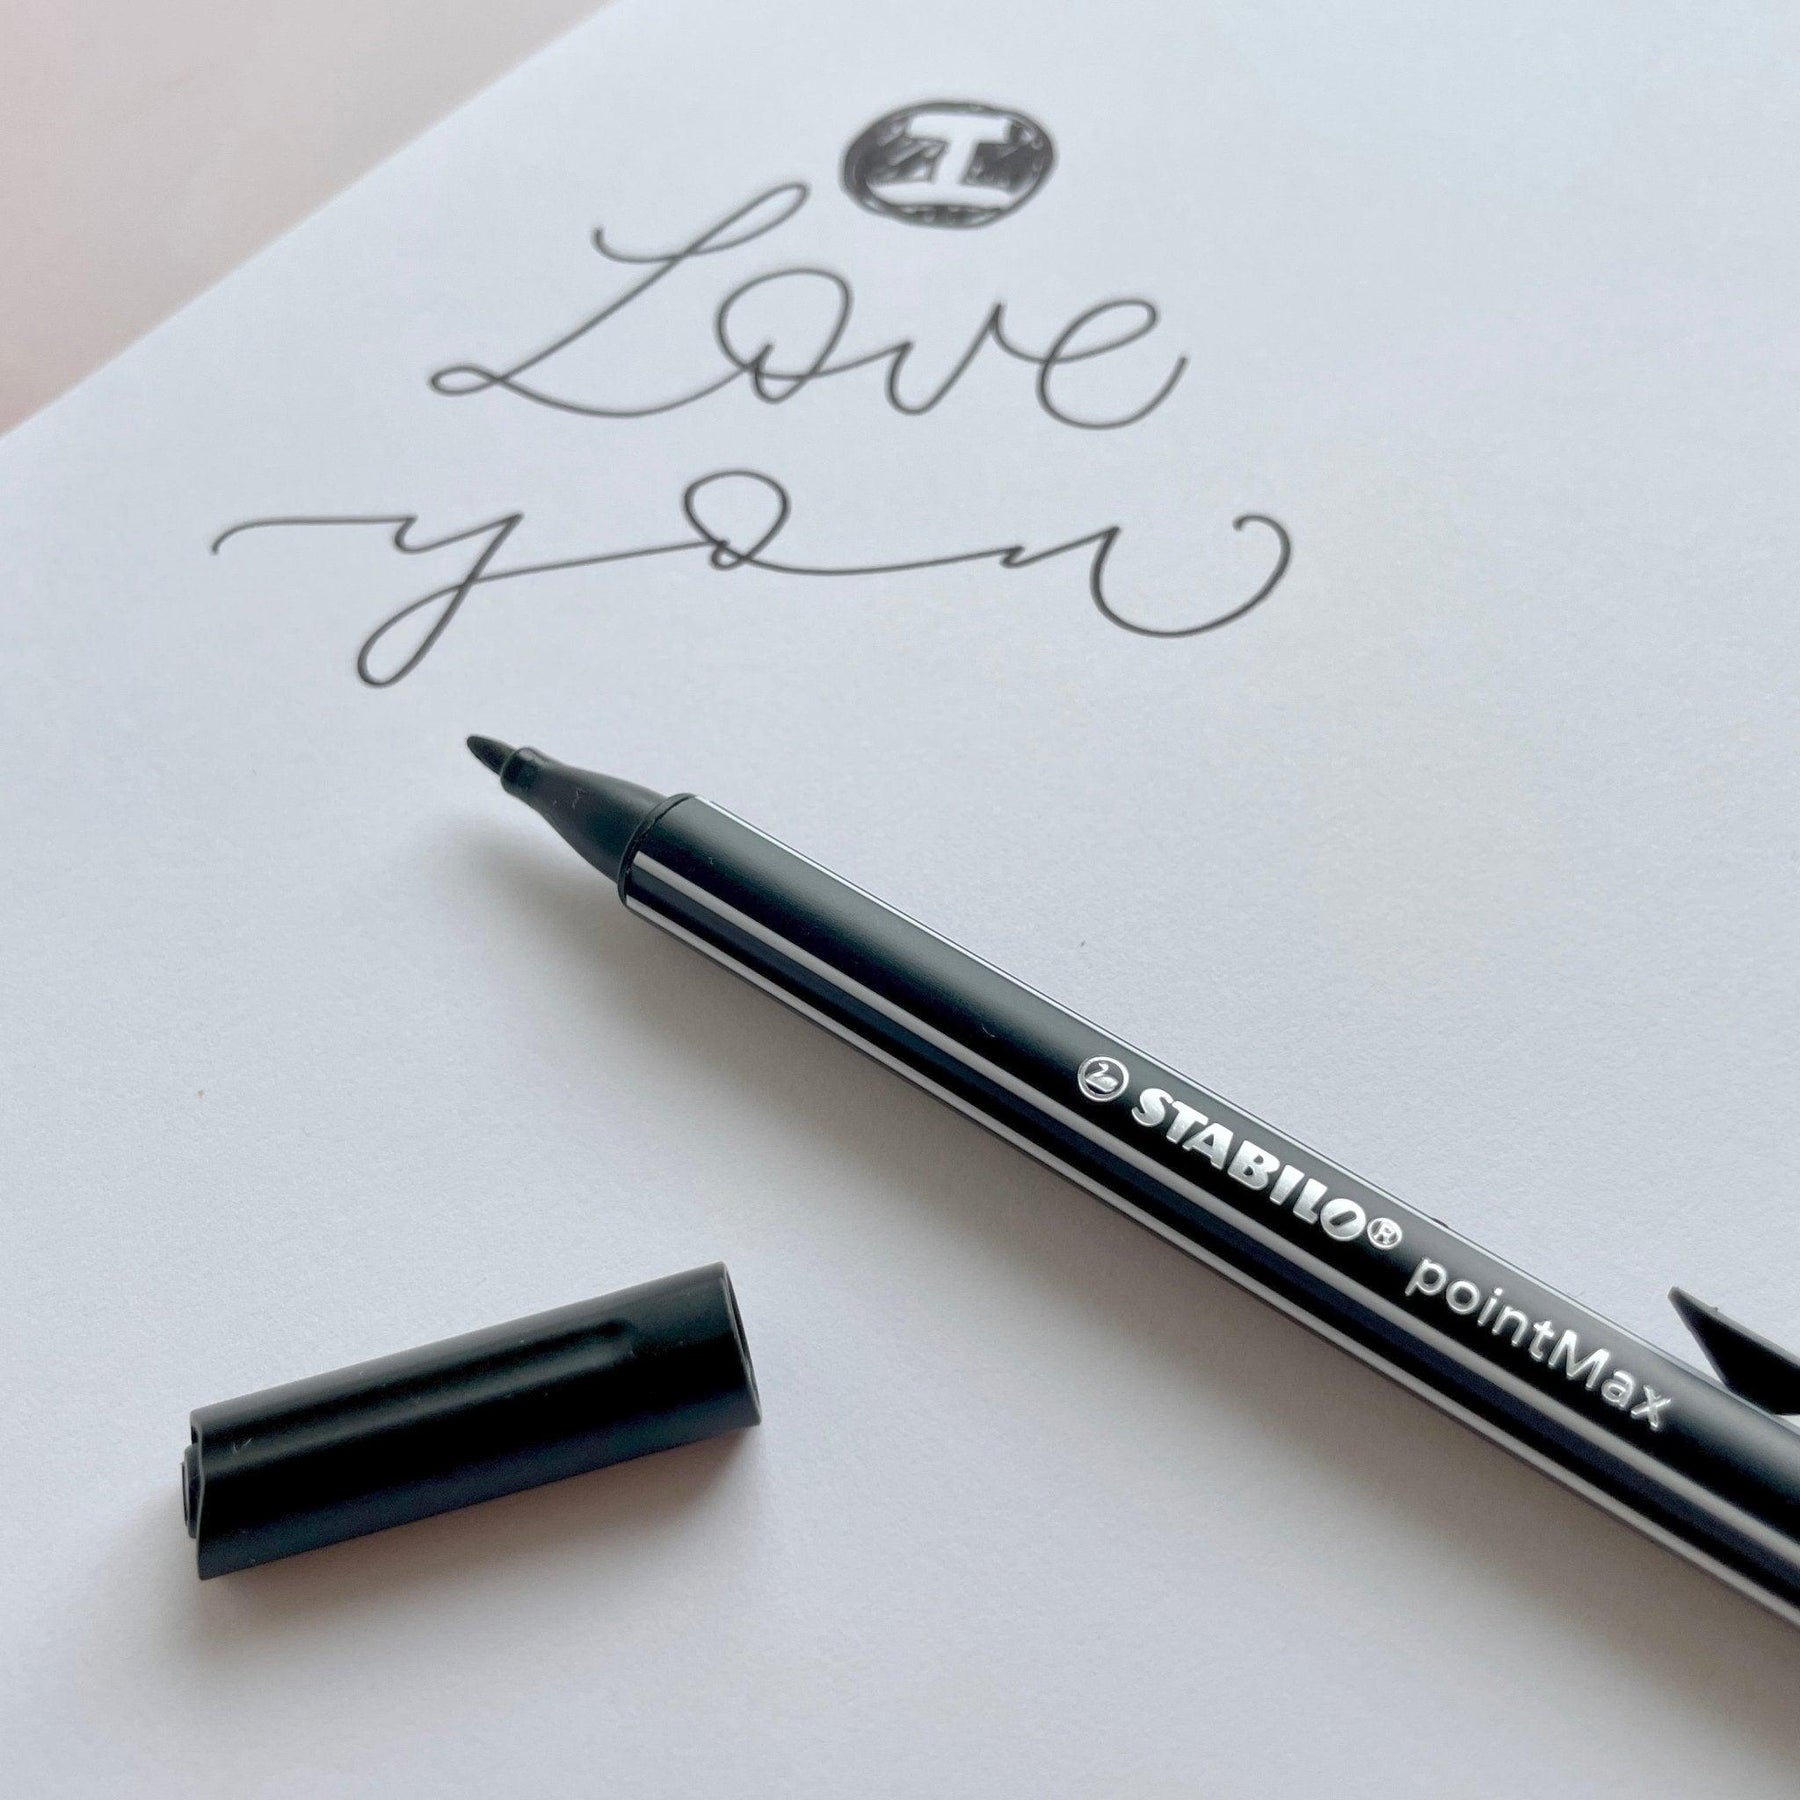 I
Love
you
STABILO® pointMax